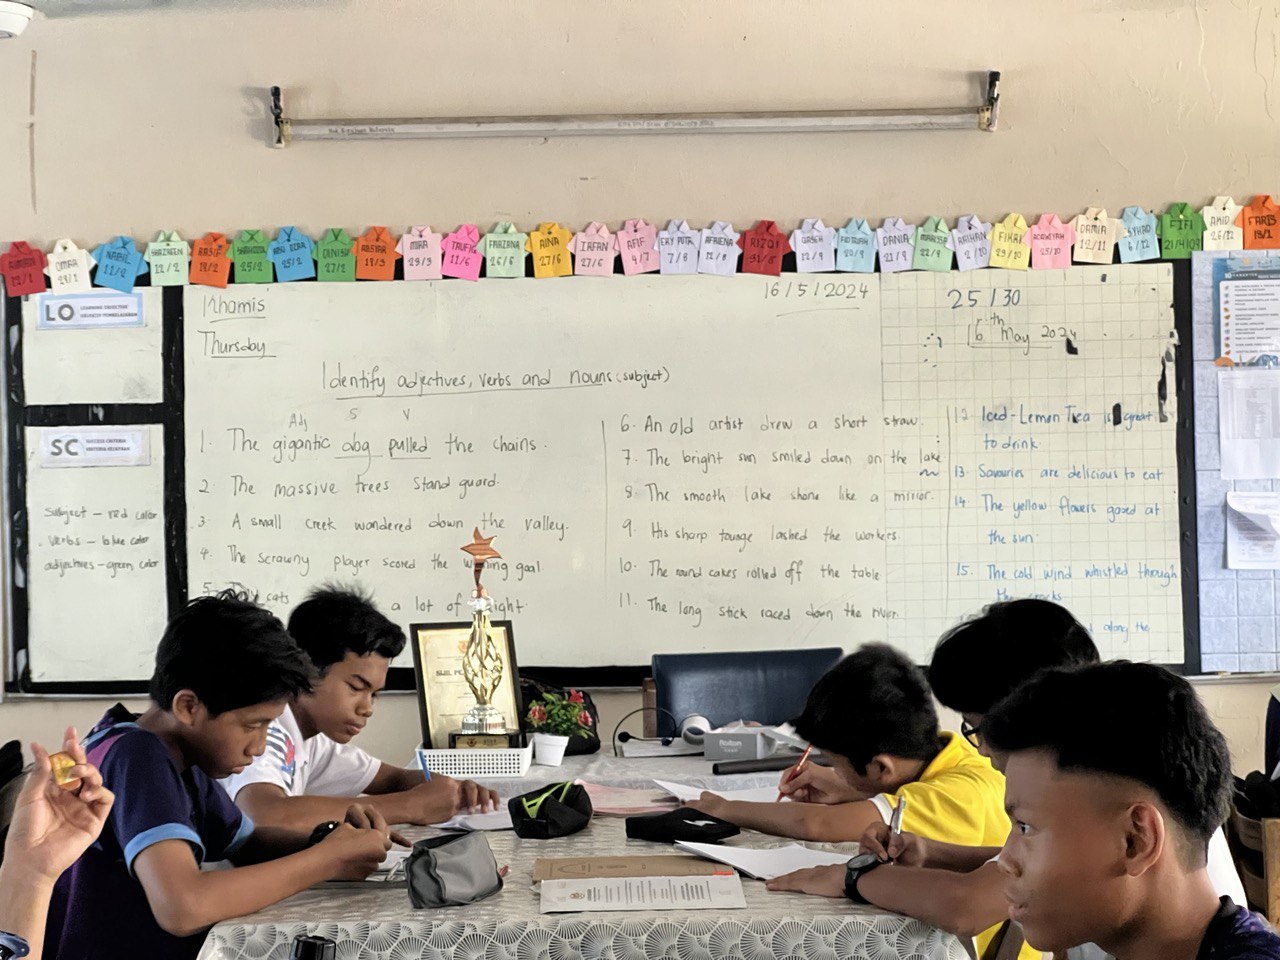 OMAR
NABIL
11/2
12/2
18/2
25/2
25/2
DANISH
27/2
19/3
MIRA
29/3
TAUFIQ
11/6
FARZANA
26/6
AINA
27/6
IRFAN
27/6
AFIF
4/7
7/8
12/8
RIZQI
31/8
12/9
20/9
DANIA
21/9
MARISSA
22/9
2/10
FIKRI
29/10
25/10
DAMIA
12/11
6/12
FIFI
21/4/09
AKID
26/12
FARIS
18/1
LO
LEARNING OBJECTIVE
OBJEKTIF PEMBELAJARAN
SC
SUCCESS CRITERIA
KRITERIA KEJAYAAN
Subject - red color
verbs - blue color
adjectives - green color
Khamis
Thursday
16/5/2024
25/30
16th May 2024
Identify adjectives, verbs and nouns (subject)
Adj S V
1. The gigantic dog pulled the chains.
2. The massive trees stand guard.
3. A small creek wandered down the valley.
4. The scrawny player scored the goal.
5. cats a lot of
6. An old artist drew a short straw.
7. The bright sun smiled down on the lake
8. The smooth lake shone like a mirror.
9. His sharp tounge lashed the workers.
10. The round cakes rolled off the table
11. The long stick raced down the river.
12. Iced-Lemon Tea is great
to drink.
13. Savouries are delicious to eat
14. The yellow flowers gazed at
the sun.
15. The cold wind whistled through
the cracks
along the